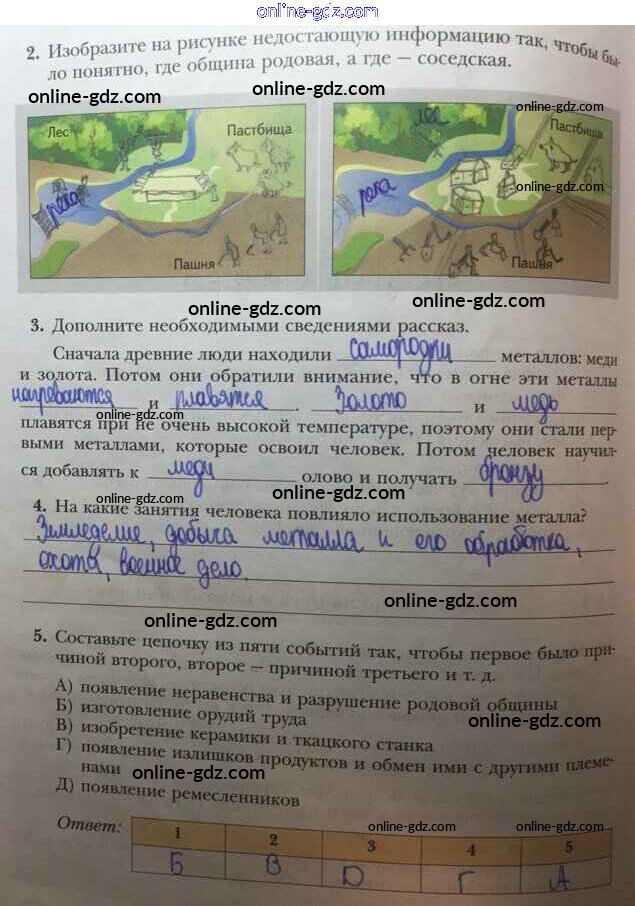 online-gdz.com
2. Изобразите на рисунке недостающую информацию так, чтобы бы-
ло понятно, где община родовая, а где — соседская.
online-gdz.com
online-gdz.com
Лес
Пастбища
река
Пашня
лес
Пастбища
online-gdz.com
река
Пашня
online-gdz.com
online-gdz.com
3. Дополните необходимыми сведениями рассказ.
Сначала древние люди находили самородки металлов: меди
и золота. Потом они обратили внимание, что в огне эти металлы
нагреваются и плавятся. Золото и медь
online-gdz.com
плавятся при не очень высокой температуре, поэтому они стали пер-
выми металлами, которые освоил человек. Потом человек научил-
online-gdz.com
ся добавлять к меди олово и получать бронзу.
online-gdz.com
online-gdz.com
4. На какие занятия человека повлияло использование металла?
Земледелие, добыча металла и его обработка,
online-gdz.com
охота, военное дело.
online-gdz.com
online-gdz.com
5. Составьте цепочку из пяти событий так, чтобы первое было при-
чиной второго, второе — причиной третьего и т. д.
А) появление неравенства и разрушение родовой общины
Б) изготовление орудий труда
online-gdz.com
В) изобретение керамики и ткацкого станка
Г) появление излишков продуктов и обмен ими с другими племе-
нами
online-gdz.com
Д) появление ремесленников
Ответ:
1 2 3 4 5
online-gdz.com
online-gdz.com
Б В D Г А
online-gdz.com